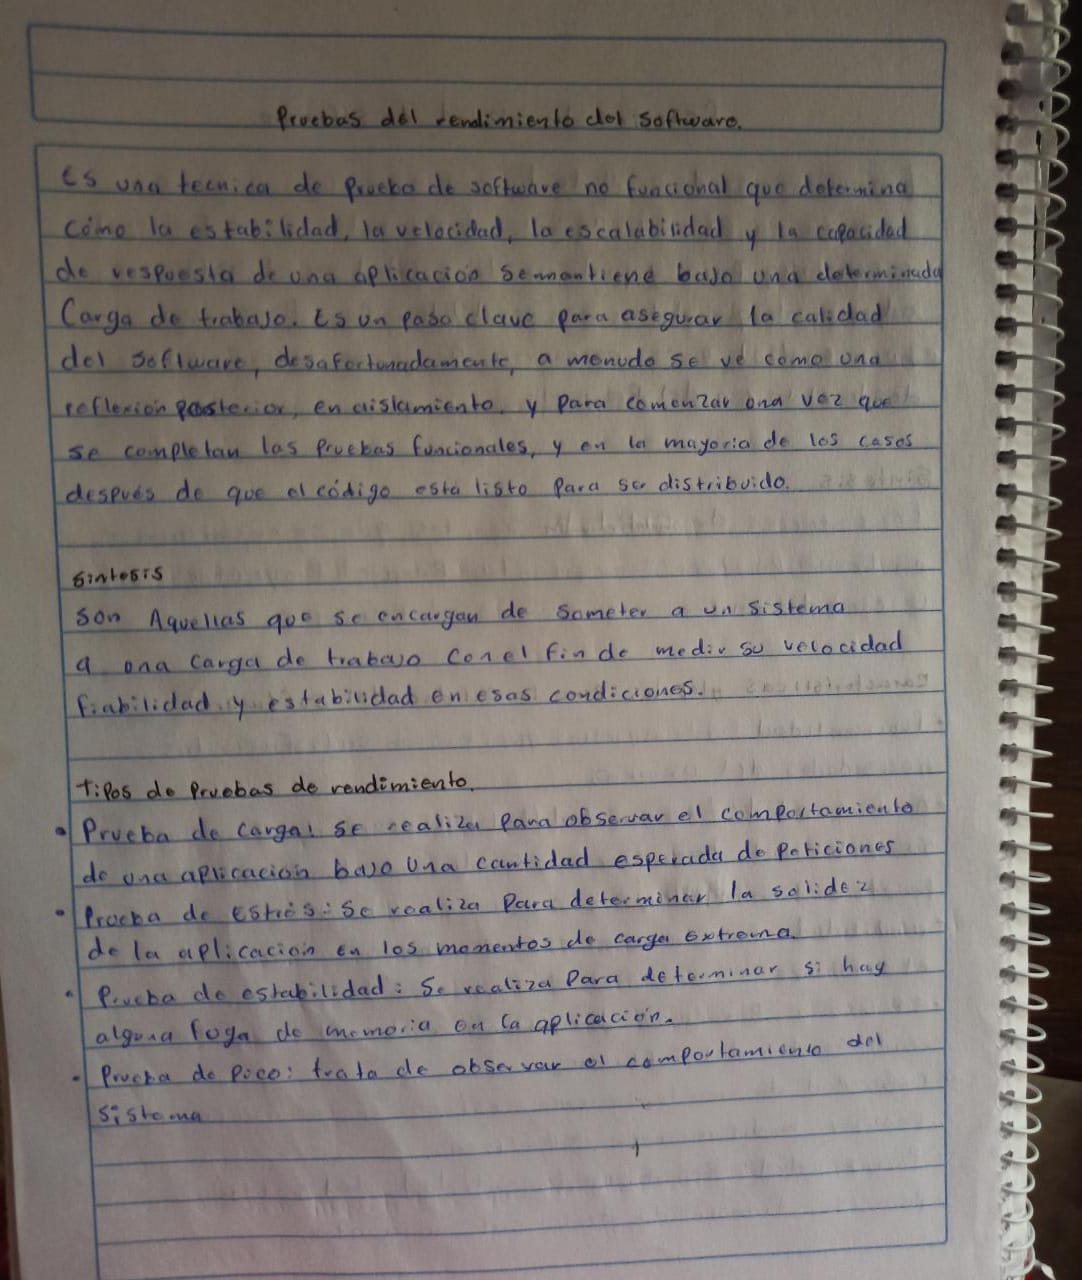 Pruebas del rendimiento del software.
Es una tecnica de prueba de software no funcional que determina
cómo la estabilidad, la velocidad, la escalabilidad y la capacidad
de respuesta de una aplicación se mantiene bajo una determinada
Carga de trabajo. Es un paso clave para asegurar la calidad
del software, desafortunadamente, a menudo se ve como una
reflexión posterior, en aislamiento, y para comenzar una vez que
se completan las pruebas funcionales, y en la mayoria de los casos
después de que el código esta listo para ser distribuido.
Sintesis
Son Aquellas que se encargan de someter a un sistema
a una carga de trabajo con el fin de medir su velocidad
fiabilidad y estabilidad en esas condiciones.
tipos de Pruebas de rendimiento.
• Prueba de carga: se realiza para observar el comportamiento
de una aplicación bajo una cantidad esperada de peticiones
• Prueba de estrés: Se realiza para determinar la solidez
de la aplicación en los momentos de carga extrema.
• Prueba de estabilidad: Se realiza para determinar si hay
alguna fuga de memoria en la aplicación.
• Prueba de pico: trata de observar el comportamiento del
sistema